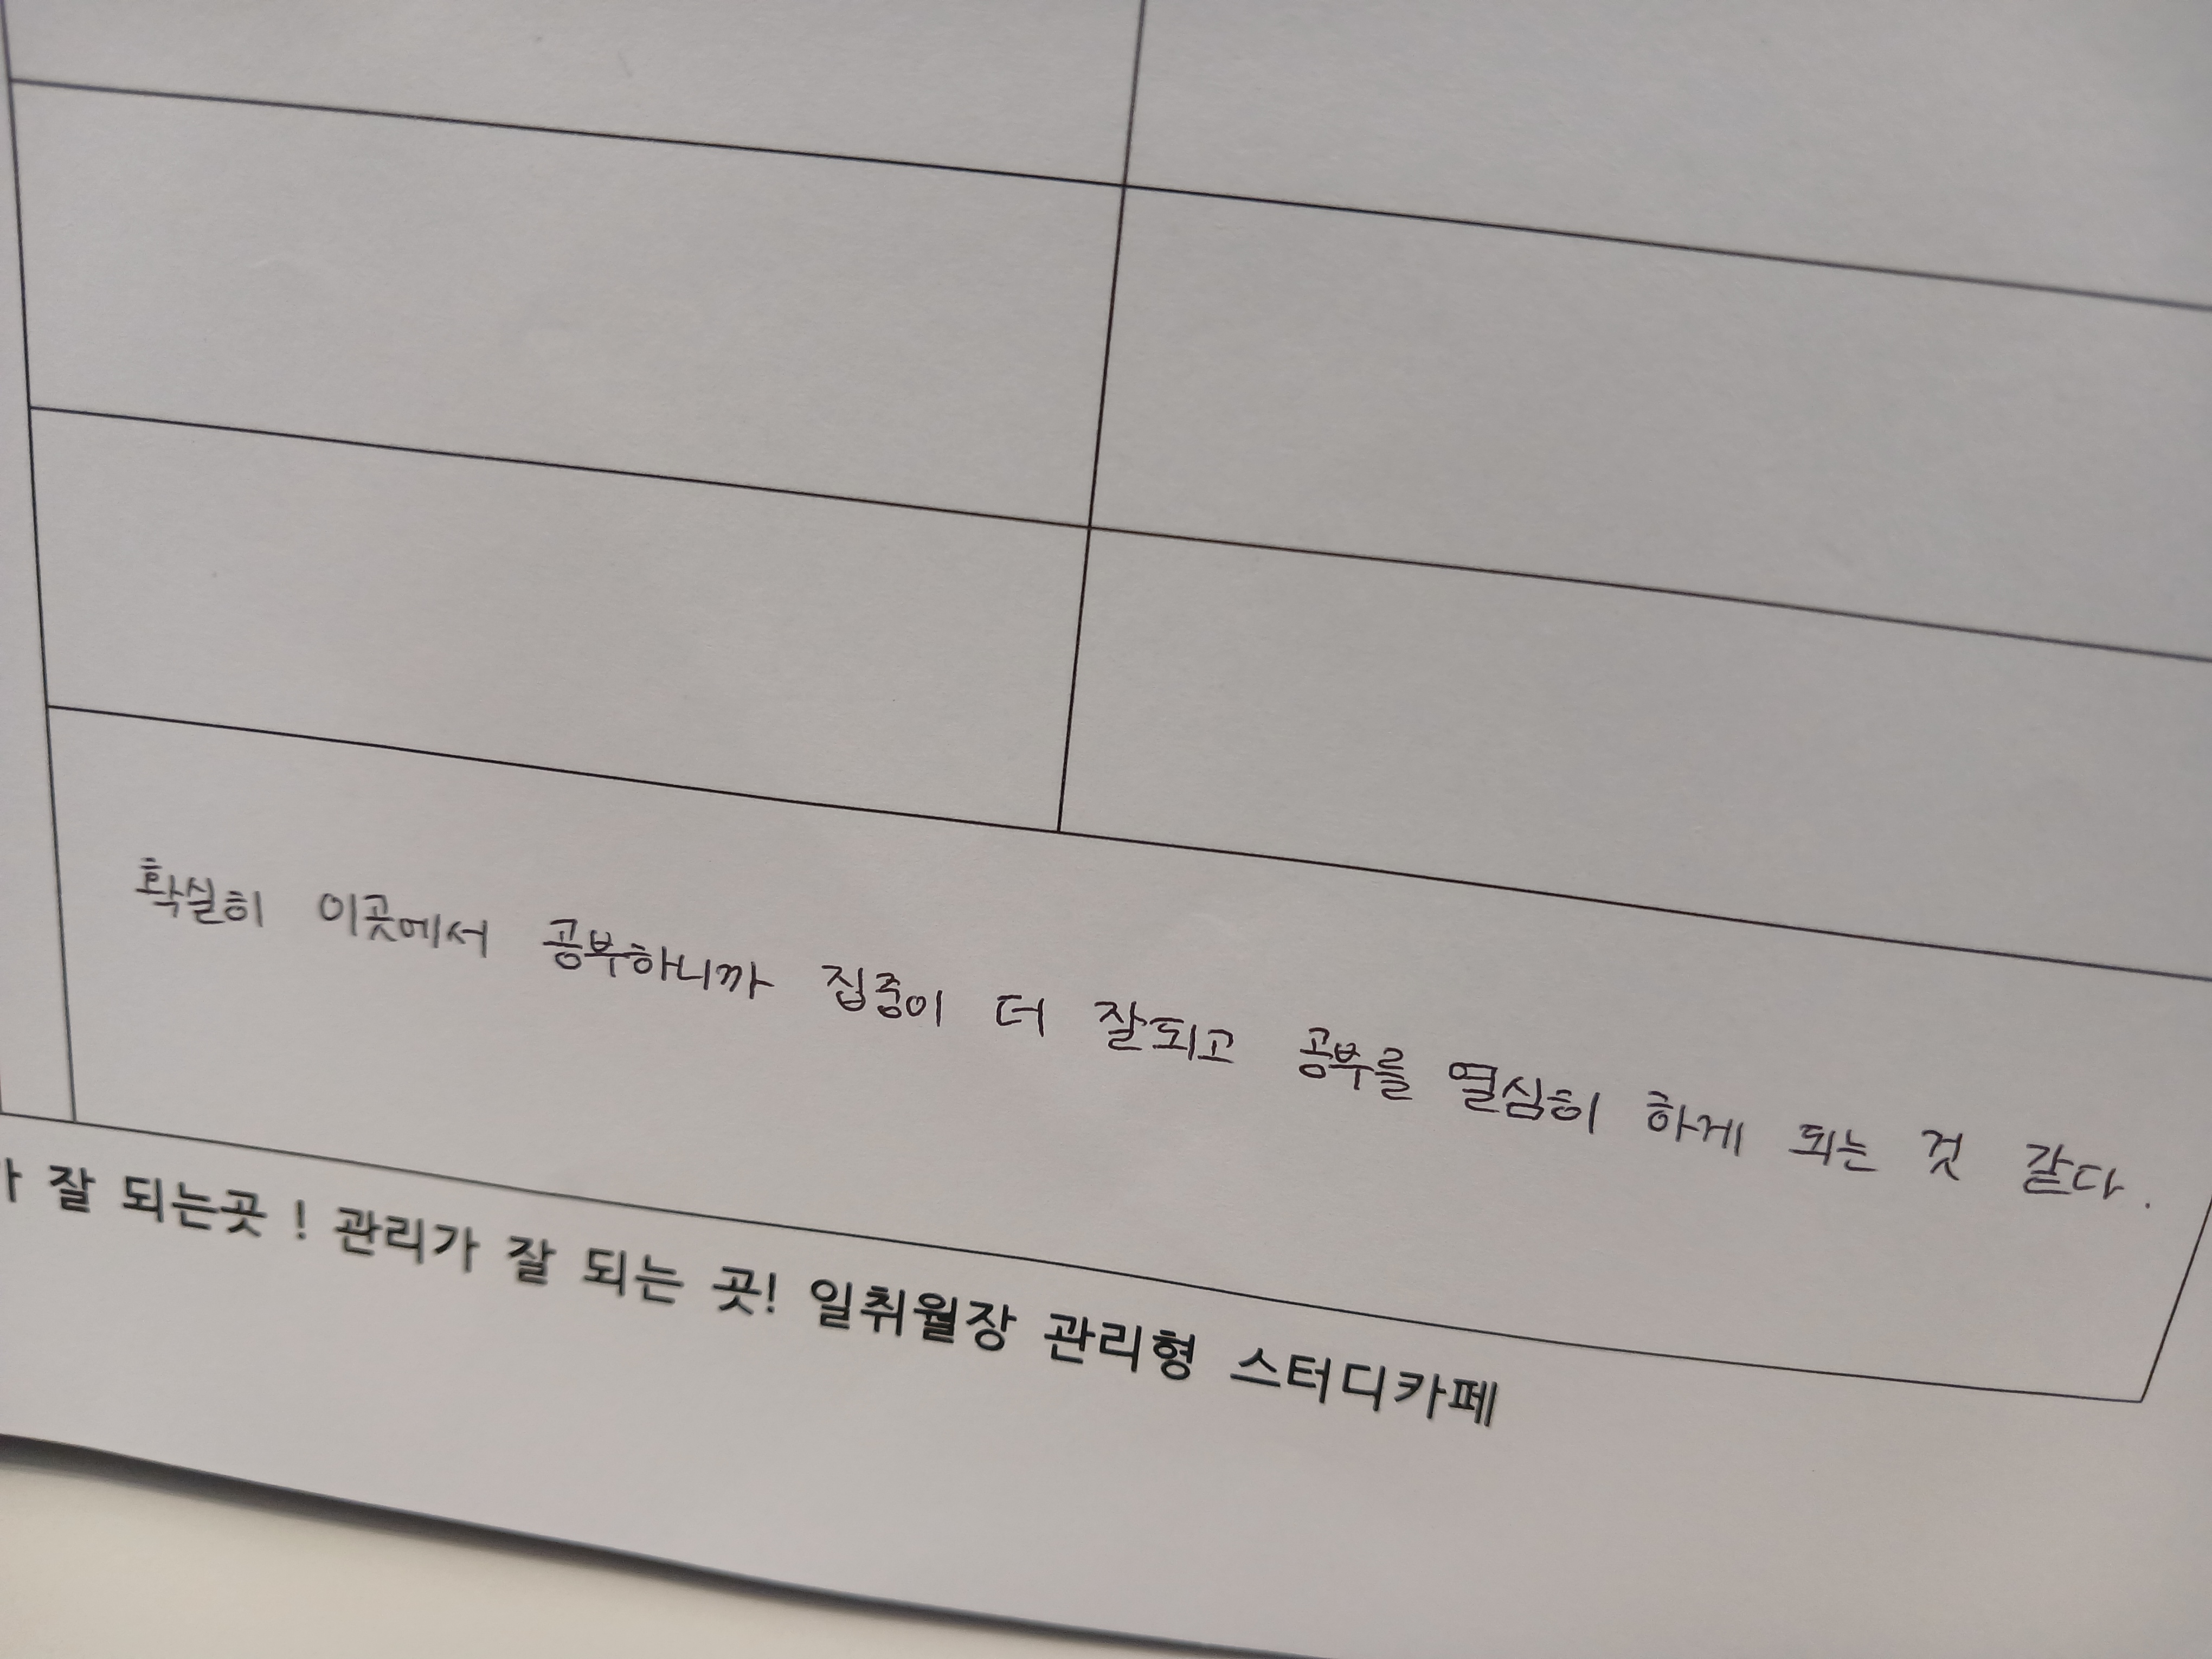 확실히 이곳에서 공부하니까 집중이 더 잘되고 공부를 열심히 하게 되는 것 같다.
잘 되는곳 ! 관리가 잘 되는 곳! 일취월장 관리형 스터디카페